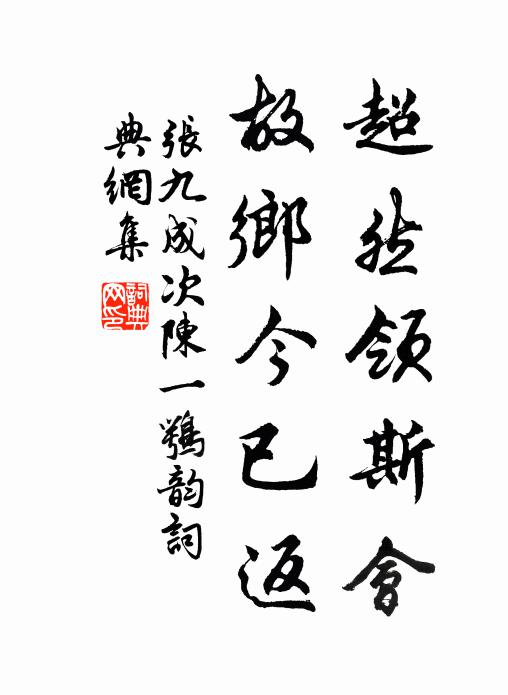 超然領斯會
故鄉今已返
張九成次陳一鶚韵詞
典網集
詞典
網印